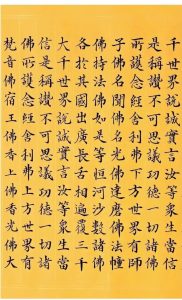 千世界說誠實言汝等衆生當信
是稱讚不可思議功德一切諸佛
所護念經舍利弗下方世界有師
子佛名聞佛名光佛達磨佛法幢
佛持法佛如是等恒河沙數諸佛
各於其國出廣長舌相遍覆三千
大千世界說誠實言汝等衆生當
信是稱讚不可思議功德一切諸
佛所護念經舍利弗上方世界有
梵音佛宿王佛香上佛香光佛大